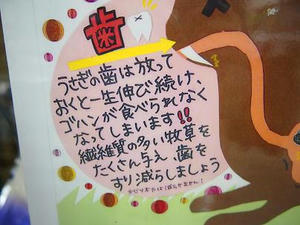 歯
うさぎの歯は放って
おくと一生伸び続け、
ゴハンが食べられなく
なってしまいます!!
繊維質の多い牧草を
たくさん与え、歯を
すり減らしましょう